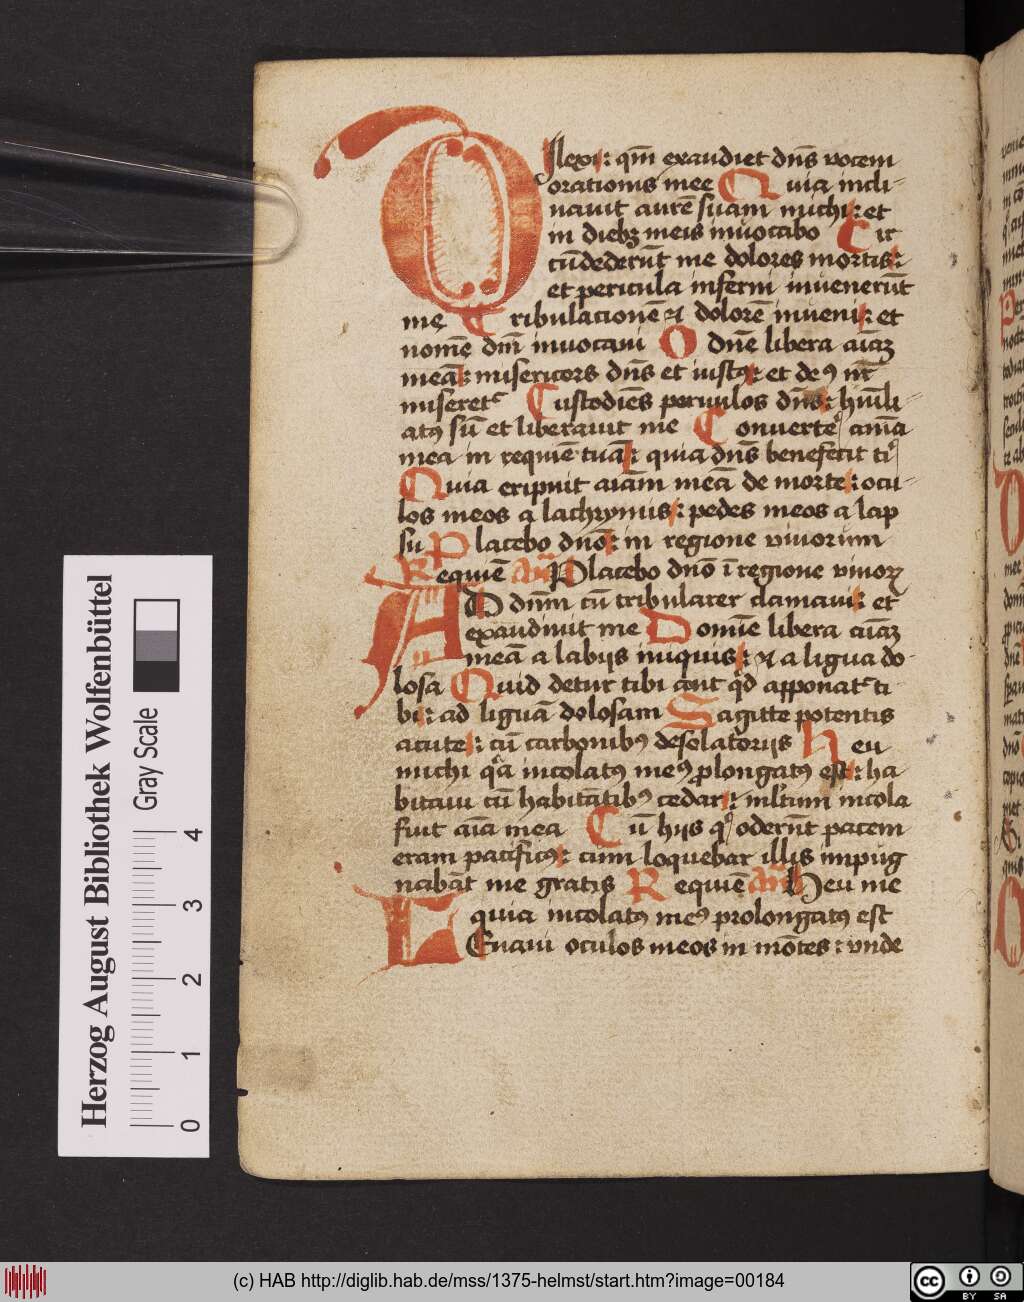 Dilexi: qm̄ exaudiet dn̄s vocem
orationis mee Quia incli-
nauit aurē suam michi: et
in diebꝫ meis inuocabo Cir
cūdederūt me dolores mortis:
et pericula inferni inuenerūt
me Tribulacionē ⁊ dolorē inueni: et
nomē dn̄i inuocaui O dn̄e libera aīaꝫ
meā: misericors dn̄s et iustꝰ: et deꝰ nr̄
miseretᷣ Custodiēs paruulos dn̄s: humīli-
atꝰ sū et liberauit me Conuerte aīma
mea in requiē tuā: quia dn̄s benefecit ti
Quia eripuit aīam meā de morte: ocu-
los meos a lachrymis: pedes meos a lap
su Placebo dn̄o: in regione viuorum
Requiē an̄ Placebo dn̄o ī regione viuoꝝ
AD dn̄m cū tribularer clamaui: et
exaudiuit me Domīe libera aīaꝫ
meā a labijs iniquis: ⁊ a ligua do-
losa Quid detur tibi aut qd̄ apponatᷣ ti
bi: ad liguā dolosam Sagitte potentis
acute: cū carbonibꝰ desolatorijs Heu
michi qᷓa incolatꝰ meꝰ ꝓlongatꝰ est: ha
bitaui cū habitātibꝰ cedar: mltum incola
fuit aīa mea Cū hijs qͥ oderūt pacem
eram pacificꝰ: cum loquebar illis impug
nabāt me gratis Requiē an̄ Heu me
quia incolatꝰ meꝰ prolongatꝰ est
LEuaui oculos meos in mōtes: vnde
Herzog August Bibliothek Wolfenbüttel
Gray Scale
0 1 2 3 4
(c) HAB http://diglib.hab.de/mss/1375-helmst/start.htm?image=00184
cc BY SA